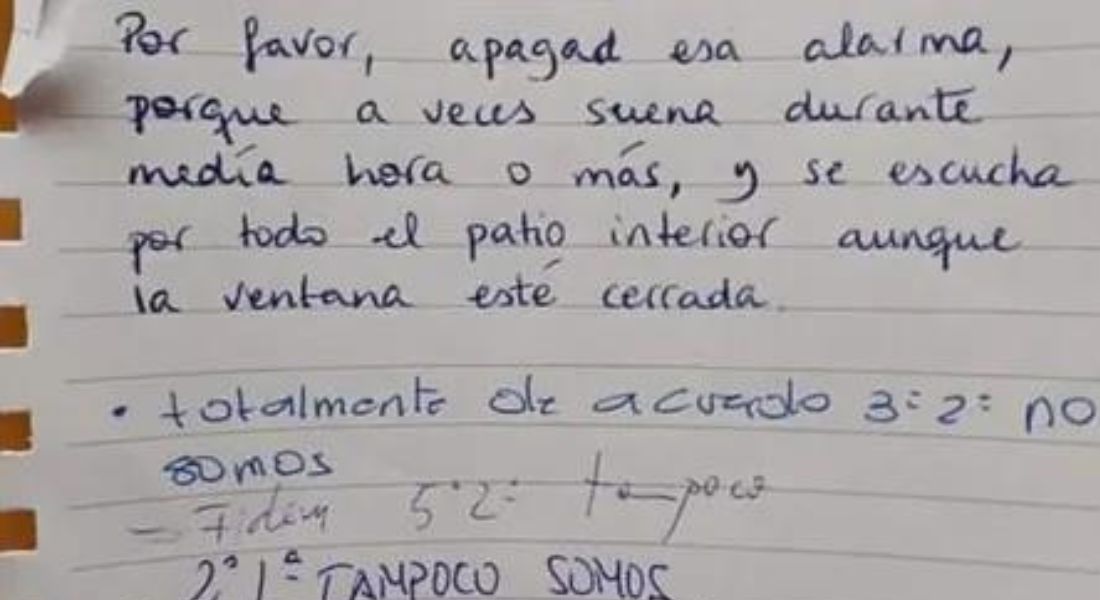 Por favor, apagad esa alarma,
porque a veces suena durante
media hora o más, y se escucha
por todo el patio interior aunque
la ventana esté cerrada.
• totalmente de acuerdo 3º 2º no
somos
- Idem 5º 2º tampoco
2º 1ª TAMPOCO SOMOS